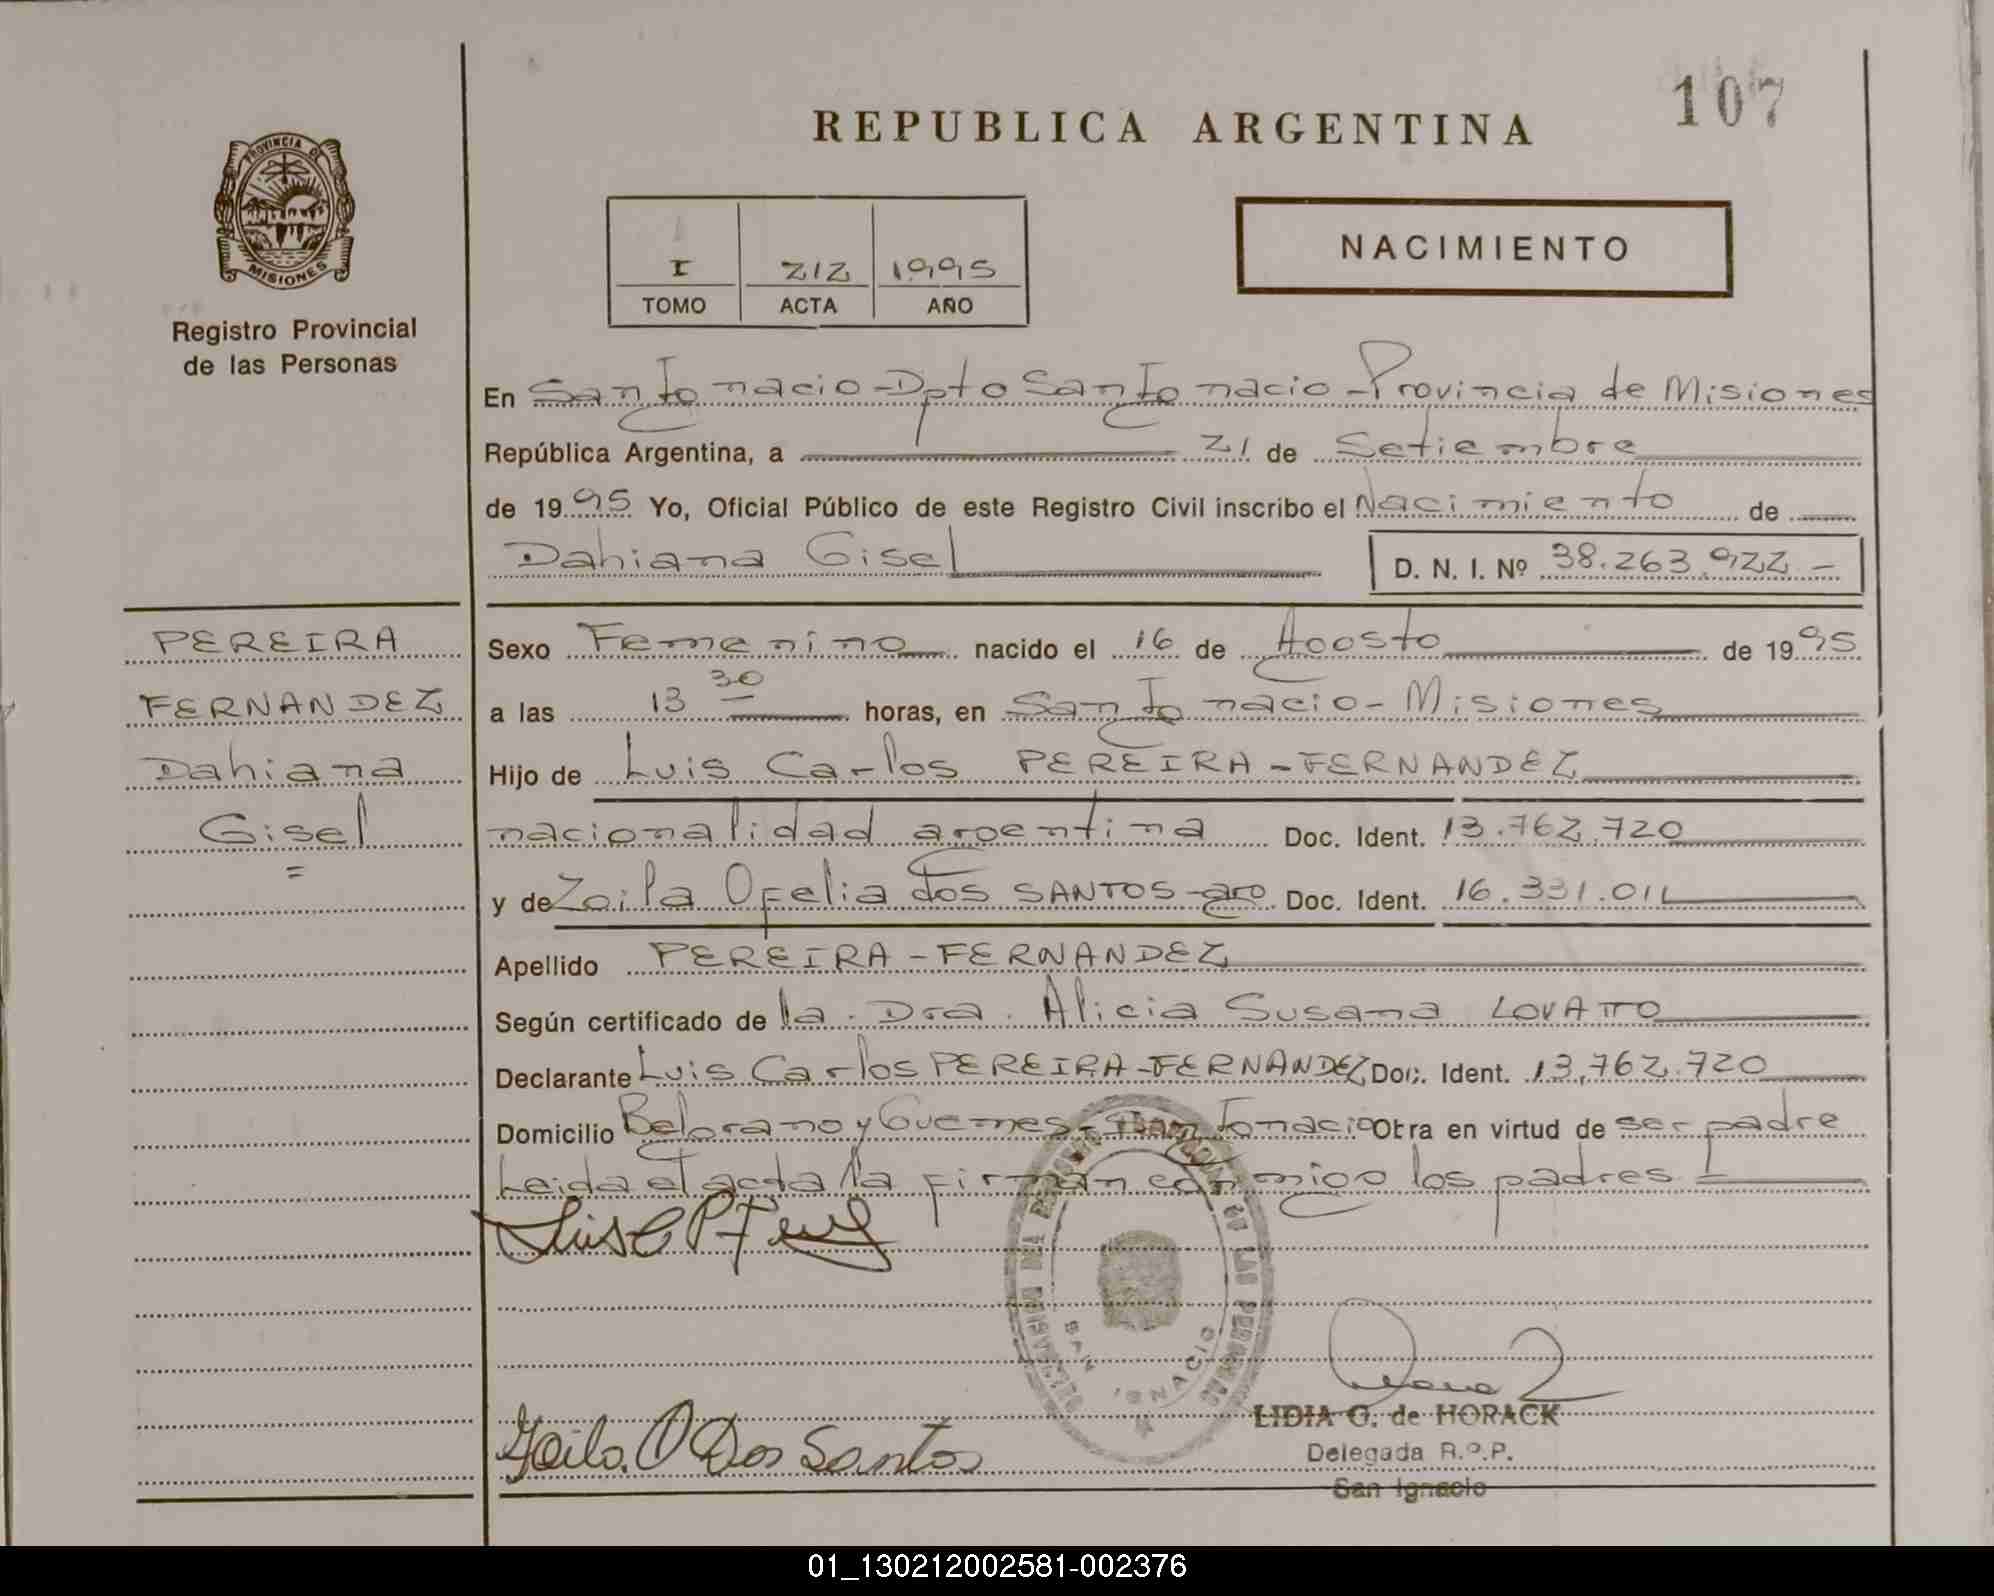 107
REPUBLICA ARGENTINA
PROVINCIA DE
MISIONES
Registro Provincial
de las Personas
I 212 1995
TOMO ACTA AÑO
NACIMIENTO
En San Ignacio-Dpto San Ignacio-Provincia de Misiones
República Argentina, a 21 de Setiembre
de 1995 Yo, Oficial Público de este Registro Civil inscribo el Nacimiento de
Dahiana Gisel D. N. I. Nº 38.263.922 -
PEREIRA
FERNANDEZ
Dahiana
Gisel
=
Sexo Femenino nacido el 16 de Agosto de 1995
a las 13 30 horas, en San Ignacio- Misiones
Hijo de Luis Carlos PEREIRA-FERNANDEZ
nacionalidad argentina Doc. Ident. 13.762.720
y de Zoila Ofelia dos SANTOS-arg Doc. Ident. 16.331.011
Apellido PEREIRA-FERNANDEZ
Según certificado de la Dra. Alicia Susana LOVATTO
Declarante Luis Carlos PEREIRA-FERNANDEZ Doc. Ident. 13.762.720
Domicilio Belgrano y Guemes- San Ignacio Obra en virtud de ser padre
Leida el acta la firman conmigo los padres
Luis C P Fern
SAN IGNACIO
DE LAS PERSONAS
Zoila. O Dos Santos
LIDIA G. de HORACK
Delegada R.º.P.
San Ignacio
01_130212002581-002376